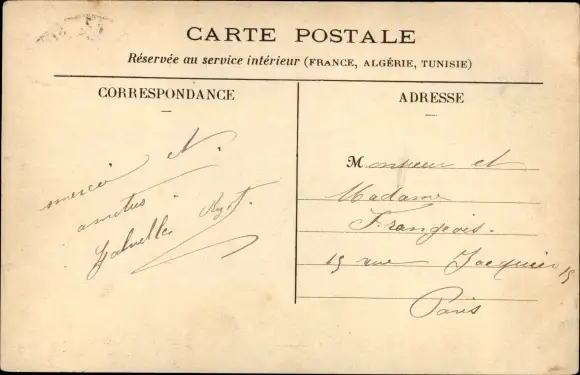 CARTE POSTALE
Réservée au service intérieur (FRANCE, ALGÉRIE, TUNISIE)
CORRESPONDANCE
merci et
amitiés
ADRESSE
Monsieur et
Madame
François.
15 rue Jacquier 15
Paris